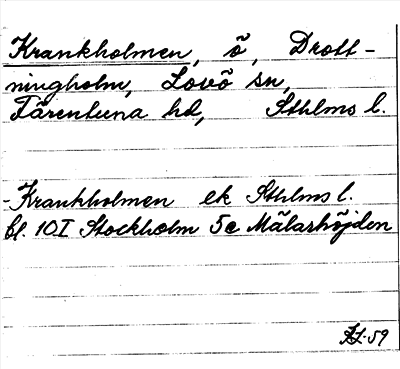 Krankholmen, ö, Drott-
ningholm, Lovö sn,
Färentuna hd, Sthlms l.
-Krankholmen ek Sthlms l.
bl. 10I Stockholm 5e Mälarhöjden